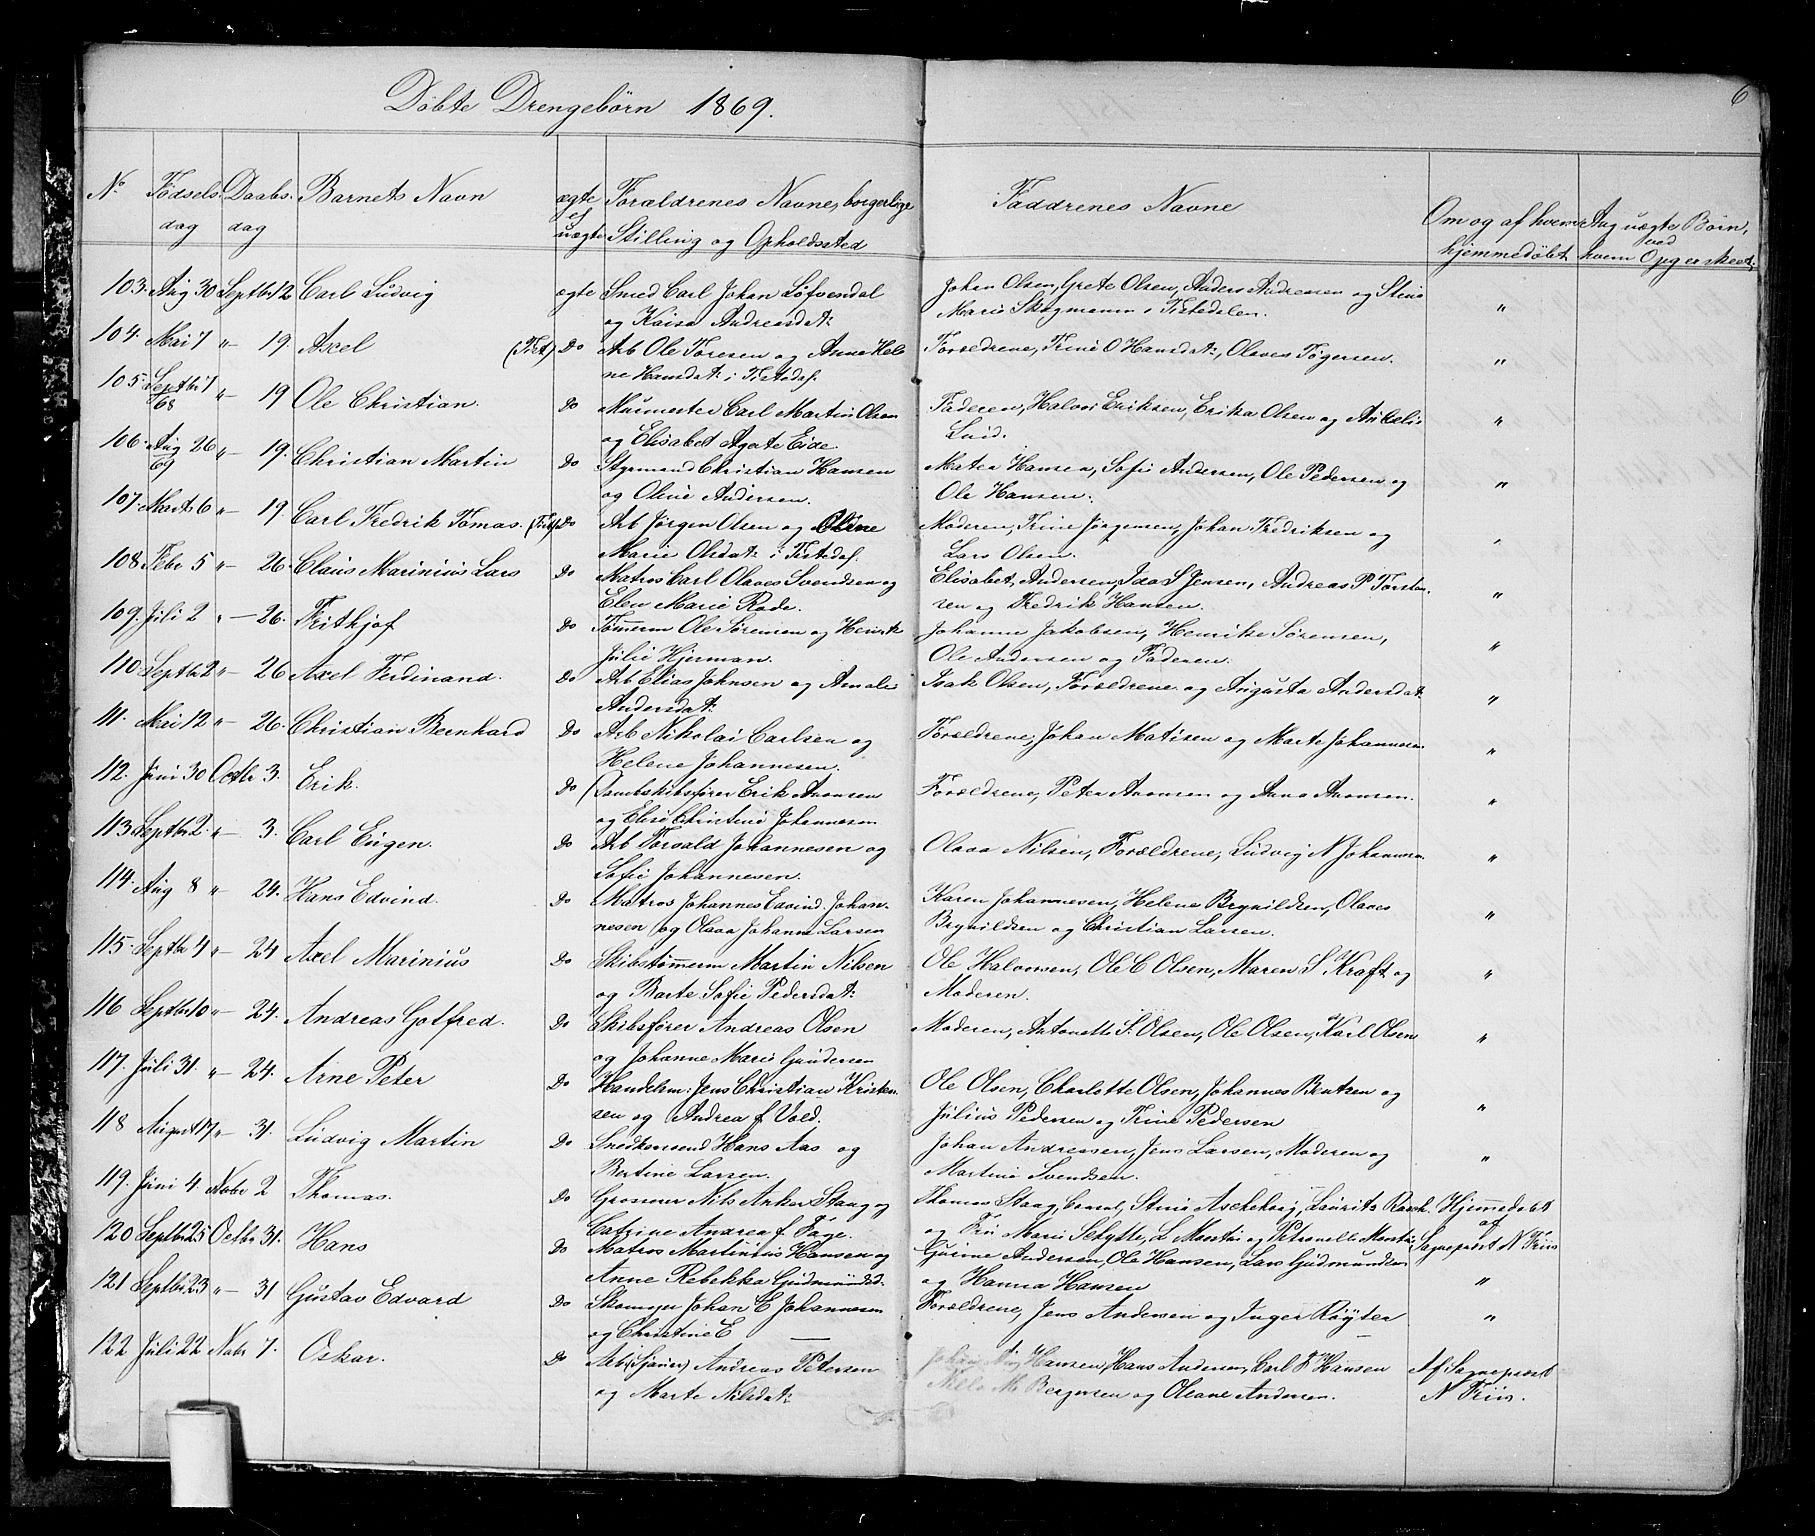 6
Döbte Drengebörn 1869.
No Födselsdag Daabsdag Barnets Navn ægte el uægte Forældrenes Navne, borgerlige Stilling og Opholdssted Faddrenes Navne Om og af hvem hjemmedöbt Ang uægte Börn, ved hvem Opg er skeet.
103. Aug 30 Septbr 12 Carl Ludvig ægte Smed Carl Johan Löfvendal Johan Olsen, Grete Olsen, Anders Andresen og Stine
og Kaisa Andreasdat: Marie Skogmann i Tistedalen. "
104. Mai 7 " 19. Axel (Tist) Do Arb Ole Toresen og Anne Hele Forældrene, Trine O Hansdat:, Olaves Tögersen.
ne Hansdat: i Tistedal. "
105. Septbr 7 68 " 19 Ole Christian. Do Murmester Carl Martin Olsen Faderen, Halvor Eriksen, Erika Olsen og
og Elisabet Agate Eide. "
106. Aug 26 69 " 19. Christian Martin Do Styrmand Christian Hansen Matea Hansen, Sofie Andersen, Ole Pedersen og
og Oline Andersen. Ole Hansen. "
107. Marts 6 " 19. Carl Fredrik Tomas. (Tist) Do Arb Jörgen Olsen og Oline Moderen, Trine Jörgensen, Johan Fredriksen og
Marie Olsdat: i Tistedal. Lars Olsen. "
108. Febr 5 " 26. Claus Marinius Lars Do Matros Carl Olaves Svendsen og Elisabet Andersen, Ida S Jensen, Andreas P Torsten
Elen Marie Rode. sen og Fredrik Hansen. "
109. Juli 2 " 26. Frithjof Do Tömerm Ole Sörensen og Henrik Johanne Jakobsen, Henrike Sörensen,
Julie Hjerman. Ole Andersen og Faderen. "
110. Septbr 2 " 26 Axel Ferdinand. Do Arb Elias Johnsen og Amalie Isak Olsen, Forældrene og Augusta Andersdat:
Andersdat: "
111. Mai 12 " 26. Christian Bernhard Do Arb Nikolai Carlsen og Forældrene, Johan Matisen og Marte Johannesen
Helene Johannesen. "
112. Juni 30 Octbr 3. Erik. Do Dambskibsförer Erik Aronsen Forældrene, Peter Aronsen og Anna Aronsen.
og Elise Christine Johannesen "
113. Septbr 2. " 3. Carl Eugen. Do Arb Torvald Johannesen og Olava Nilsen, Forældrene, Ludvig N Johannesen
Sofie Johannesen. "
114. Aug 8 " 24. Hans Edvind. Do Matros Johannes Edvind Johan- Karen Johannesen, Helene Brynildsen, Olaves
nesen og Olava Johanne Larsen Brynildsen og Christian Larsen. "
115. Septbr 4 " 24 Axel Marinius Do Skibstömerm Martin Nilsen Ole Halvorsen, Ole C Olsen, Maren S Kraft og
og Barte Sofie Pedersdat: Moderen. "
116 Septbr 10 " 24. Andreas Gotfred. Do Skibsförer Andreas Olsen Moderen, Antonette S. Olsen, Ole Olsen, Karl Olsen
og Johanne Marie Gundersen "
117. Juli 31. " 24. Arne Peter Do Handelsm: Jens Christian Kristen- Ole Olsen, Charlotte Olsen, Johannes Bentsen og
sen og Andrea f. Vold. Julius Pedersen og Trine Pedersen "
118 August 17 " 31. Ludvig Martin Do Snedkersvend Hans Aas og Johan Andressen, Jens Larsen, Moderen og
Bertine Larsen. Martine Svendsen. "
119. Juni 4. Nobr 2 Thomas. Do Grosserer Nils Anker Stang og Thomas Stang, Consul, Stine Aschehoug, Laurits Rasch. Hjemmedöbt
Catrine Andrea f. Tage. og Fru Marie Schytte, L Monstu og Petronelle Monstu af Sogneprest N Friis
120 Septbr 25 Octbr 31. Hans Do Matros Martinius Hansen og Gurine Andersen, Ole Hansen, Lars Gudmundsen
Anne Rebekka Gudmundsd. og Hanna Hansen "
121 Septbr 23 " 31 Gustav Edvard Do Skomager Johan E Johannesen Forældrene, Jens Andersen og Inger Röyter
og Christine E — "
122 Juli 22 Nobr 7. Oskar. Do Arb (Sjauer) Andreas Petersen Johan Hansen, Hans Andersen, Carl F Hansen Af Sogneprest
og Marte Nilsdat: Nills M Bergersen og Oleane Andersen. N Friis.